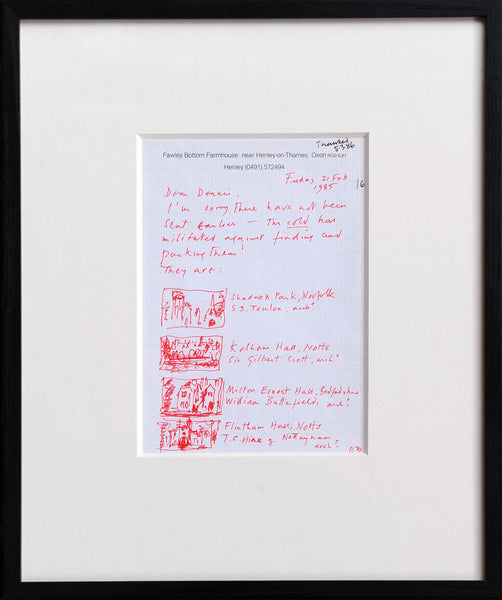 Thanked
5.3.86
Fawley Bottom Farmhouse near Henley-on-Thames Oxon RG9 6JH
Henley (0491) 572494
Friday, 21 Feb
1985
16
Dear Dennis.
I'm sorry these have not been
sent earlier — The cold has
militated against finding and
packing them!
They are:
Shadwell Park, Norfolk
S.S. Teulon, archt
Kelham Hall, Notts
Sir Gilbert Scott, archt
Milton Ernest Hall, Bedfordshire
William Butterfield, archt
Flintham Hall, Notts
T.C. Hine of Nottingham
archt